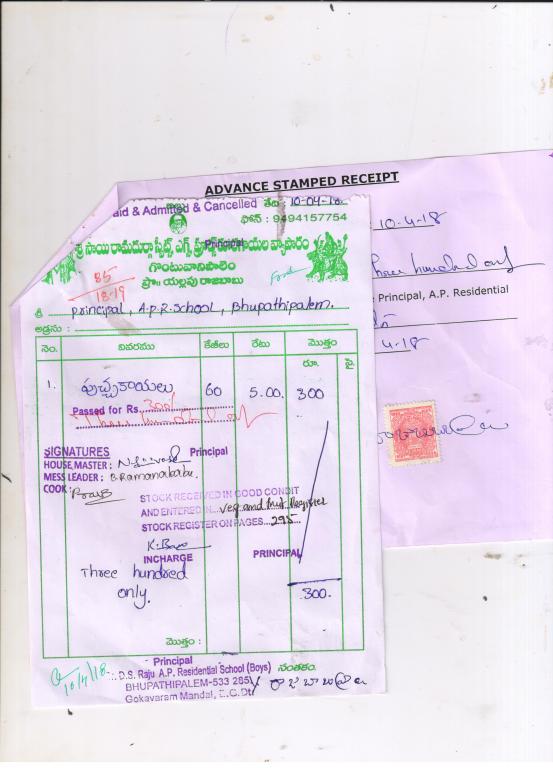 ADVANCE STAMPED RECEIPT
10-4-18
Three hundred only
Principal, A.P. Residential
4-18
aid & Admitted & Cancelled
తేది: 10-04-18
ఫోన్ : 9494157754
Principal
శ్రీ సాయి రామదుర్గా
వ్యాపారం
గొంటువానిపాలెం
ప్రొ॥ యల్లపు రాజబాబు
Food
85
18-19
శ్రీ Principal, A.P.R. School, Bhupathipalem.
అడ్రసు :
నెం. వివరము కేజీలు రేటు మొత్తం
రూ. పై
1. పుచ్చకాయలు 60 5.00 300
Passed for Rs. 300/-
SIGNATURES Principal
HOUSE MASTER :
MESS LEADER : B. Ramanababu.
COOK :
STOCK RECEIVED IN GOOD CONDIT
AND ENTERED IN veg and fruit Register
STOCK REGISTER ON PAGES 295
INCHARGE PRINCIPAL
Three hundred
only.
300.
మొత్తం :
Principal
D.S. Raju A.P. Residential School (Boys) సంతకం.
BHUPATHIPALEM-533 285
Gokavaram Mandal, E.G.Dt
10/4/18